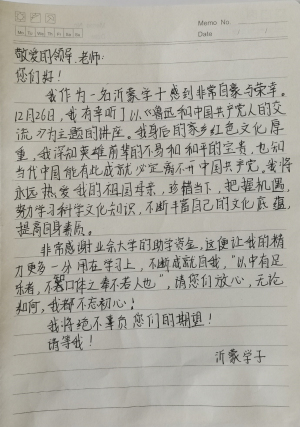 Memo No.
Date
Mo Tu We Th Fr Sa Su
敬爱的领导、老师:
您们好!
我作为一名沂蒙学子感到非常自豪与荣幸。
12月26日,我有幸听了以《鲁迅和中国共产党人的交
流》为主题的讲座。我身后的家乡红色文化厚
重,我深知英雄前辈的不易和和平的宝贵,也知
当代中国能有此成就必定离不开中国共产党。我将
永远热爱我的祖国母亲,珍惜当下,把握机遇,
努力学习科学文化知识,不断丰富自己的文化底蕴,
提高自身素质。
非常感谢 大学的助学资金,这便让我的精
力更多一分用在学习上,不断成就自我,“以中有足
乐者,不知口体之奉不若人也”,请您们放心,无论
如何,我都不忘初心;
我将绝不辜负您们的期望!
请等我!
沂蒙学子